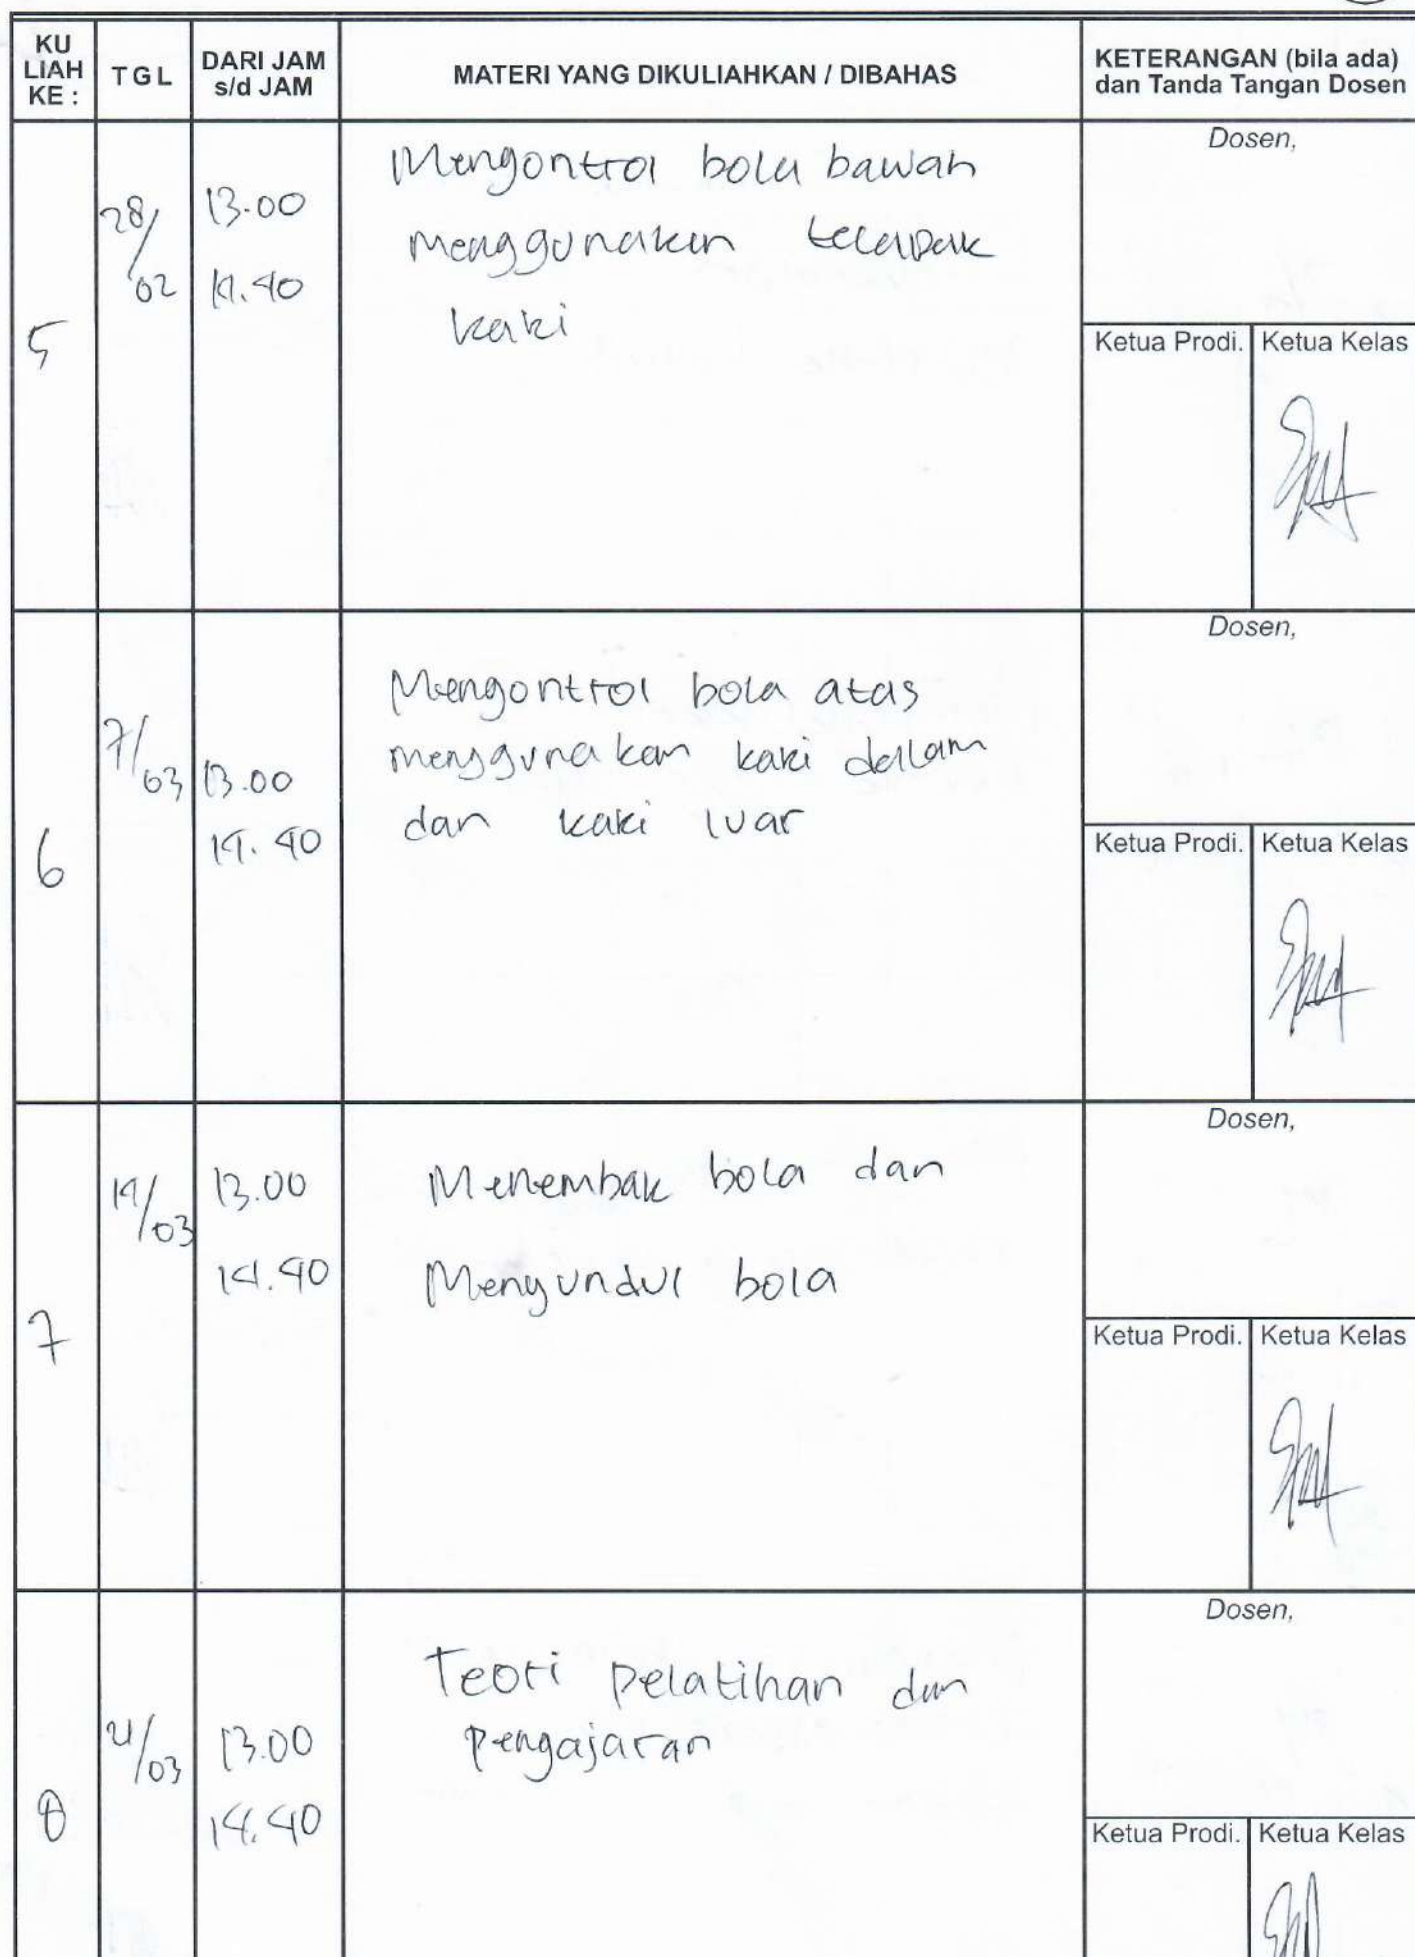 KU LIAH KE : TGL DARI JAM s/d JAM MATERI YANG DIKULIAHKAN / DIBAHAS KETERANGAN (bila ada) dan Tanda Tangan Dosen
5
28/02
13.00
14.40
Mengontrol bola bawah
menggunakan telapak
kaki
Dosen,
Ketua Prodi. Ketua Kelas
6
7/03
13.00
14.40
Mengontrol bola atas
menggunakan kaki dalam
dan kaki luar
Dosen,
Ketua Prodi. Ketua Kelas
7
14/03
13.00
14.40
Menembak bola dan
Menyundul bola
Dosen,
Ketua Prodi. Ketua Kelas
8
21/03
13.00
14.40
Teori pelatihan dan
pengajaran
Dosen,
Ketua Prodi. Ketua Kelas